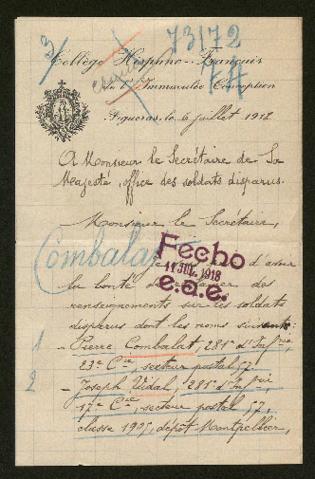 3
73172
Collège Hispano-Français
de l'Immaculée Conception
Figueras, le 6 juillet 1918
A Monsieur le Secrétaire de Sa
Majesté, office des soldats disparus.
Monsieur le Secrétaire,
Combalat
Fecho
11 JUL. 1918
e.a.e.
d'avoir
la bonté de
renseignements sur les soldats
disparus dont les noms suivent:
1
Pierre Combalat, 281e d'Infrie,
23e Cie, secteur postal 57.
2
Joseph Vidal, 281e d'Infrie
17e Cie, secteur postal 57,
classe 1905, dépôt Montpellier,